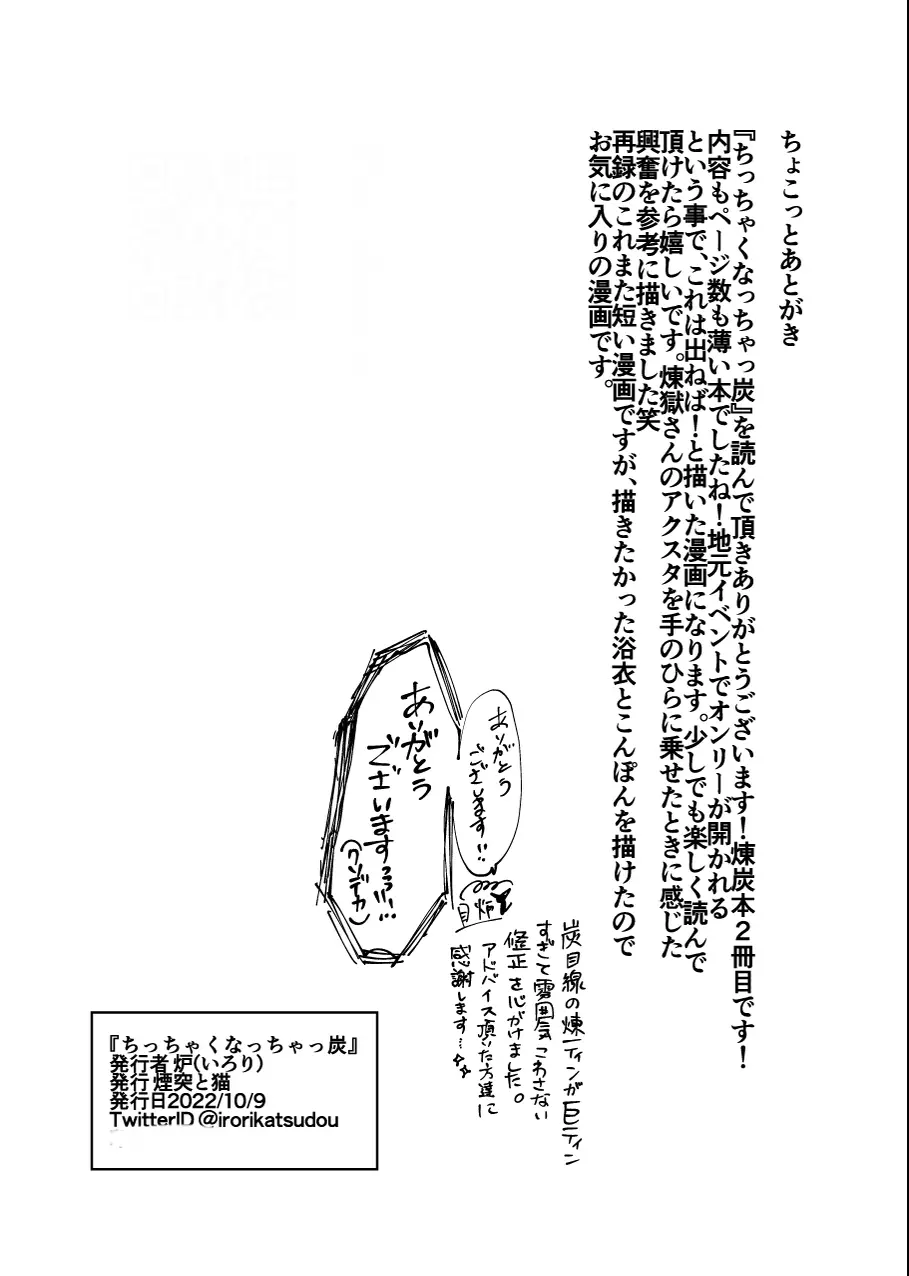 ちょこっとあとがき
『ちっちゃくなっちゃっ炭』を読んで頂きありがとうございます！煉炭本２冊目です！
内容もページ数も薄い本でしたね！地元イベントでオンリーが開かれる
という事で、これは出ねば！と描いた漫画になります。少しでも楽しく読んで
頂けたら嬉しいです。煉獄さんのアクスタを手のひらに乗せたときに感じた
興奮を参考に描きました笑
再録のこれまた短い漫画ですが、描きたかった浴衣とこんぽんを描けたので
お気に入りの漫画です。
炭目線の煉ティンが巨ティン
すぎて雰囲気こわさない
修正を心がけました。
アドバイス頂いた方達に
感謝します…
ありがとう
ございます!!
炉
ありがとう
ございますっっ!!…
(クソデカ)
『ちっちゃくなっちゃっ炭』
発行者 炉(いろり)
発行 煙突と猫
発行日2022/10/9
TwitterID @irorikatsudou